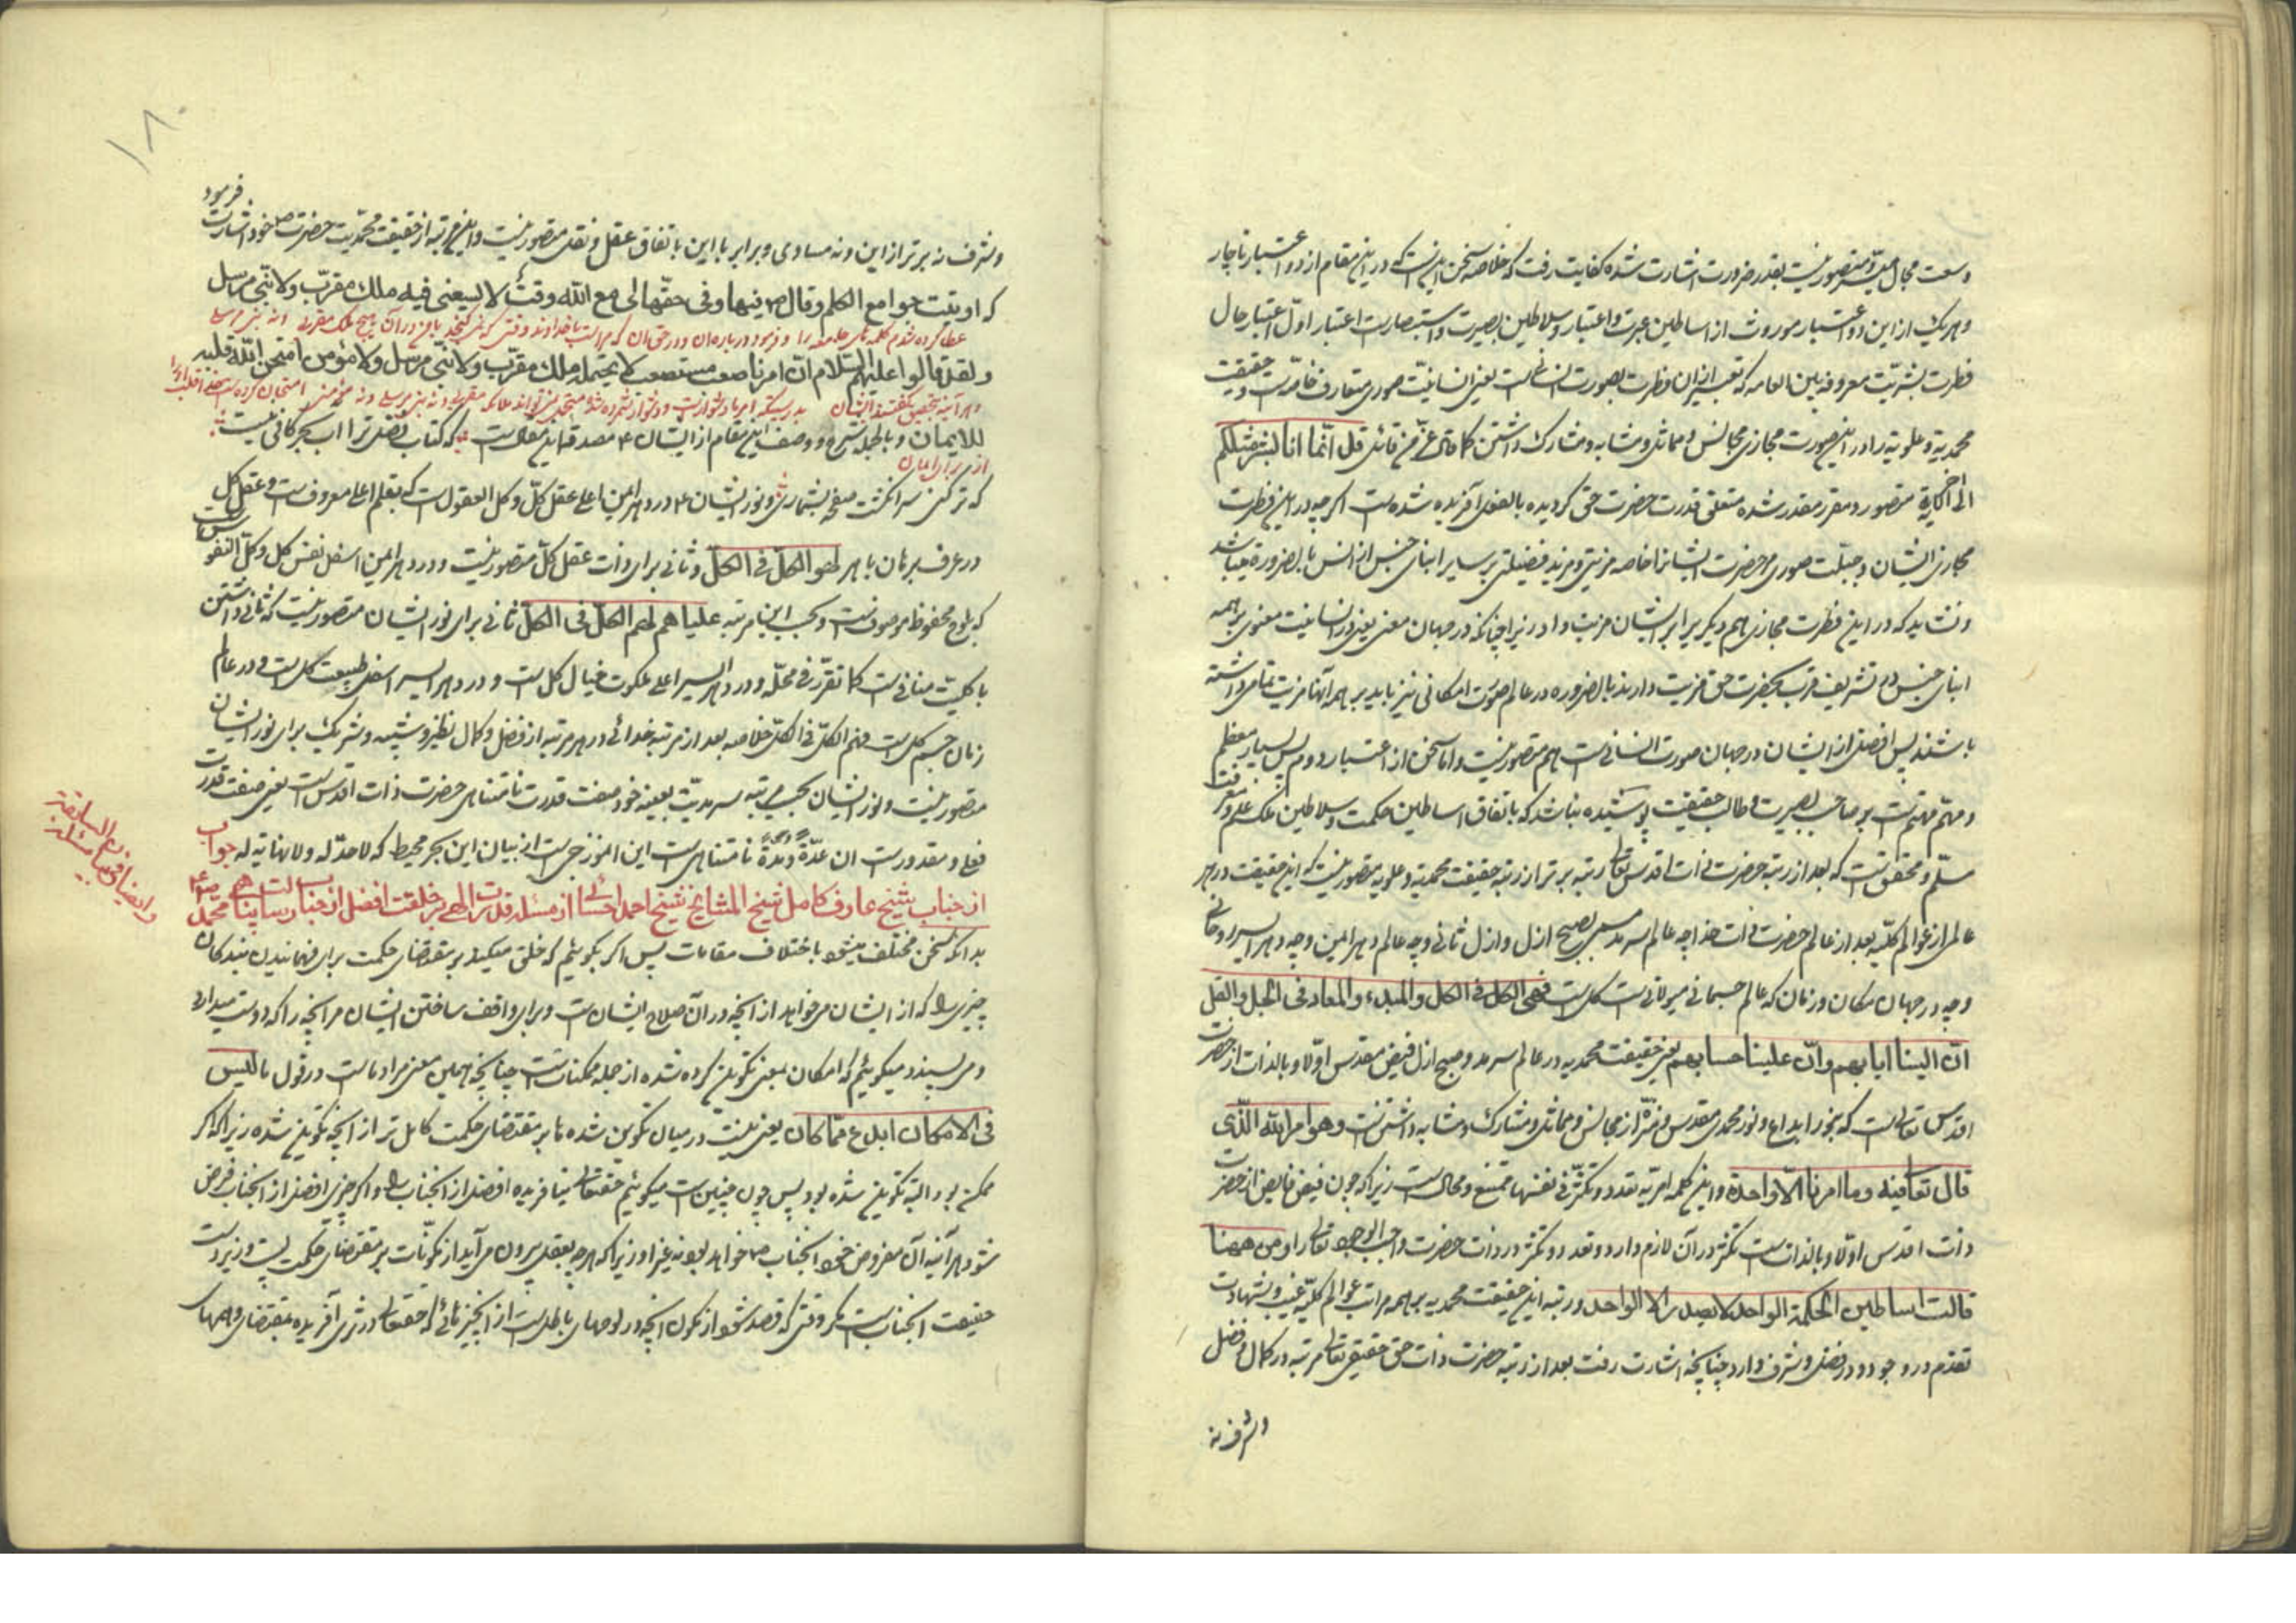 وسعت مجال میسّر و متصور نیست بقدر ضرورت اشارت شده کفایت رفت که خلاصه سخن این است که در این مقام از دو اعتبار ناچار
و هر یک از این دو اعتبار موروث از اساطین عبرت و اعتبار و سلاطین بصیرت و استبصار است اعتبار اوّل اعتبار حال
فطرت بشریّت معروفه بین العامه که تعبیر از ان فطرت بصورت انسانی است یعنی انسانیّت صوری متعارف خاصه است و حقیقت
محمدیة و علویة را در این صورت مجازی مجانس و مماثل و مشابه و مشارک داشتن کما قال عزّ من قائل قل انّما انا بشر مثلکم
الی اخر الایة متصور و مقرر مقدر شده متعلق قدرت حضرت حق گردیده بالفعل آفریده شده است اگر چه در این فطرت
مجازی ایشان و جبلّت صوری حضرت ایشانرا خاصه مزیتی و مزید فضیلتی بر سایر ابنای جنس از انس بالضرورة میباشد
و نشاید که در این فطرت مجازی هم دیگر برابر ایشان مزیت دارد زیرا چنانکه در جهان معنی یعنی در انسانیت معنوی بر همه
ابنای جنس در تشریف قرب بحضرت حق مزیت دارند بالضروره در عالم صورت امکانی نیز باید بر همه آنها مزیت تمامی داشته
باشند پس افضل از ایشان در جهان صورت انسانی است هم متصور نیست و اما سخن از اعتبار دوم پس بسیار معظم
و مهتم مهتم است بر صاحب بصیرت و طالب حقیقت پوشیده نباشد که باتفاق اساطین حکمت و سلاطین ملک علم و معرفت
مسلّم و محقق است که بعد از رتبه حضرت ذات اقدس تعالی رتبه برتر از رتبه حقیقت محمدیه و علویه متصور نیست که این حقیقت در هر
عالم از عوالم کلیّه بعد از عالم حضرت ذات خدا چه عالم سرمد مسمی بصبح ازل و ازل ثانی و چه عالم دهر ایمن و چه دهر ایسر روحانی
و چه در جهان مکان و زمان که عالم جسمانی هیولانی است کل است فهی الکل فی الکل و المبدء و المعاد فی الجل و القل
انّ الینا ایابهم و انّ علینا حسابهم یعنی حقیقت محمدیه در عالم سرمد و صبح ازل فیض مقدس اوّلا و بالذات از حضرت
اقدس تعالی است که بنور ابداع و نور محمدی مقدس و منزّه از مجانس و مماثل و مشارک و مشابه داشتن است و هو امر الله الّذی
قال تعالی فیه و ما امرنا الّا واحدة و این کلمه امریّه تعدد و تکثّر فی نفسها ممتنع و محال است زیرا که چون فیض فایض از حضرت
ذات اقدس اوّلا و بالذات است تکثر در آن لازم دارد و تعدد و تکثر در ذات حضرت واجب الوجود تعالی را و من ههنا
قالت اساطین الحکمة الواحد لا یصدر عنه الا الواحد و رتبه این حقیقت محمدیه بر همه مراتب عوالم کلیّه غیب و شهادت
تقدم در وجود و در فضل و شرف دارد چنانچه اشارت رفت بعد از رتبه حضرت ذات حق حقیقی تعالی مرتبه در کمال و فضل
و شرف نه
۱۸۰
فرمود
و شرف نه برتر از این و نه مساوی و برابر با این باتفاق عقل و نقل متصور نیست و این مرتبه از حقیقت محمدیت حضرت ص خود اشارت
که اوتیت جوامع الکلم و قال ص فیها و فی حقّها لی مع الله وقت لا یسعنی فیه ملک مقرّب و لا نبی مرسل
عطا کرده شدم کلمه های جامعه را و فرمود درباره ان و در حق ان که مر است با خداوند وقتی که نمیگنجد با من در آن هیچ ملک مقرب و نه نبی مرسل
و لقد قالوا علیهم السّلام انّ امرنا صعب مستصعب لا یحتمله ملک مقرّب و لا نبی مرسل و لا مؤمن امتحن الله قلبه
و هر آینه بتحقیق گفتند ایشان بدرستیکه امر ما دشوار است و دشوار شمرده شده متحمل نمیتواند ملائکه مقرب و نه نبی مرسل و نه مؤمنی امتحان کرده است خدا قلب او را
للایمان و بالجمله شرح و وصف این مقام از ایشان ع مصدقه این مقال است که کتاب فضل ترا اب بحر کافی نیست
از برای ایمان
که تر کنی سر انگشت و صفحه بشماری و نور ایشان ع در دهر ایمن اعلی عقل کلّ و کل العقول است که بقلم اعلی معروف است و عقل کل
در عرف برهان باهر لهو الکلّ فی الکلّ و ثانی برای ذات عقل کلّ متصور نیست و در دهر ایمن اسفل نفس کل و کلّ النفوس است
که بلوح محفوظ موصوف است و بحسب این مرتبه علیا هم لهم الکلّ فی الکلّ ثانی برای نور ایشان متصور نیست که ثانی داشتن
با کلیّت منافی است کما تقرّر فی محلّه و در دهر ایسر اعلی ملکوت خیال کل است و در دهر ایسر اسفل طبیعت کل است و در عالم
زمان جسم کل است فهم الکلّ فی الکلّ خلاصه بعد از مرتبه خدائی در هر مرتبه از فضل و کمال نظیر و شبیه و شریک برای نور ایشان
متصور نیست و نور ایشان بحسب مرتبه سرمدیّت بعینه خود صفت قدرت نامتناهی حضرت ذات اقدس است یعنی صفت قدرت
فعلی و مقدورات ان عدّة و مدّة و شدّة نامتناهی است این انموزجی است از بیان این بحر محیط که لا حدّ له و لا نهایة له جواب
از جناب شیخ عارف کامل شیخ المشایخ شیخ احمد احسائی از مسئله قدرت الهی بر خلقت افضل از جناب رسالت پناه محمد ص
بدانکه سخن مختلف میشود باختلاف مقامات پس اگر بگوئیم که خلق میکند بر مقتضای حکمت برای فهمانیدن بندگان
چیزی را که از ایشان میخواهد از آنچه در آن صلاح ایشان است و برای واقف ساختن ایشان مر انچه را که دوست میدارد
و می پسندد میگوئیم که امکان بمعنی تکوین کرده شده از جمله ممکنات است چنانچه همین معنی مراد ما است در قول ما لیس
فی الامکان ابدع ممّا کان یعنی نیست در میان تکوین شده ها بر مقتضای حکمت کامل تر از انچه تکوین شده زیرا که اگر
ممکن بود البته تکوین شده بود پس چون چنین است میگوئیم حقتعالی نیافریده افضل از انجناب را و اگر چیزی افضل از انجناب فرض
شود هر آینه آن مفروض خود انجناب ص خواهد بود نه غیر او زیرا که هر چه بعقل بیرون می آید از مکونات بر مقتضای حکمت پست و زیر دست
حقیقت انجناب است مگر وقتی که قصد شود از مکون انچه در لوحهای باطل است از انچیزهائی که حقتعالی در ثری آفریده بمقتضای وهمهای